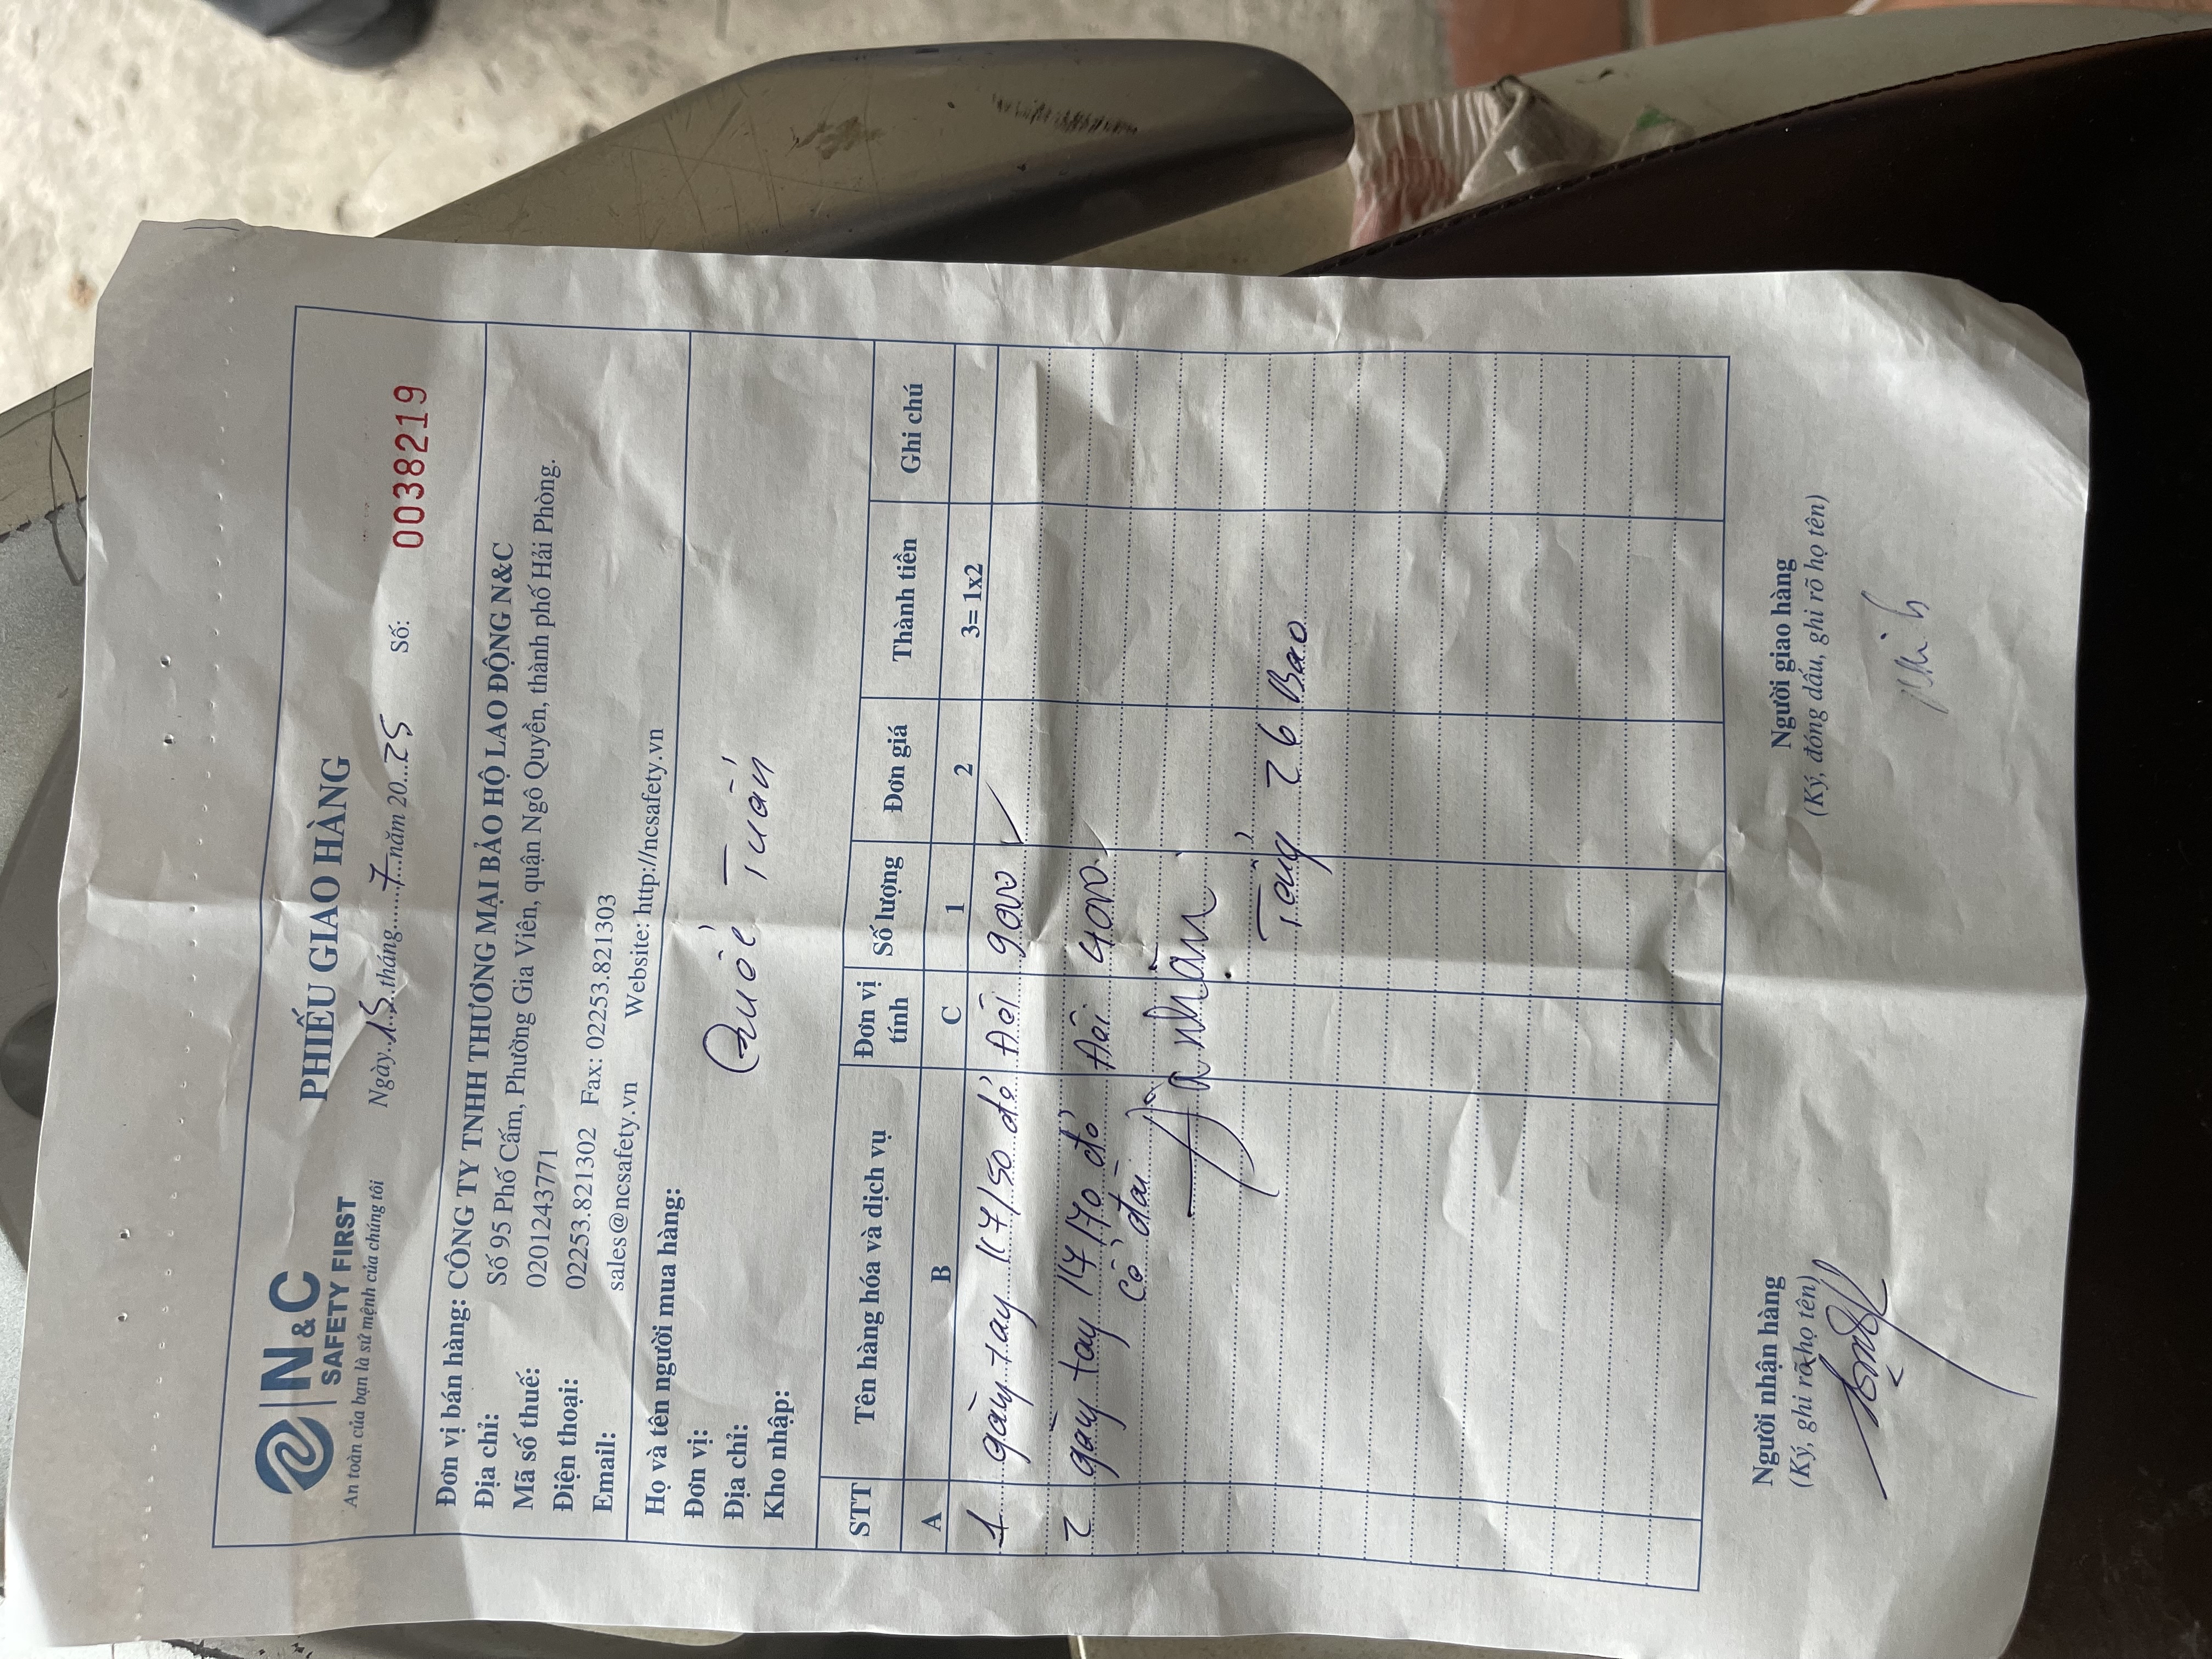 N&C
SAFETY FIRST
An toàn của bạn là sứ mệnh của chúng tôi
PHIẾU GIAO HÀNG
Ngày 15 tháng 7 năm 2025 Số: 0038219
Đơn vị bán hàng: CÔNG TY TNHH THƯƠNG MẠI BẢO HỘ LAO ĐỘNG N&C
Địa chỉ: Số 95 Phố Cấm, Phường Gia Viên, quận Ngô Quyền, thành phố Hải Phòng.
Mã số thuế: 0201243771
Điện thoại: 02253.821302 Fax: 02253.821303
Email: sales@ncsafety.vn Website: http://ncsafety.vn
Họ và tên người mua hàng:
Đơn vị: Quốc Tuấn
Địa chỉ:
Kho nhập:
STT Tên hàng hóa và dịch vụ Đơn vị tính Số lượng Đơn giá Thành tiền Ghi chú
A B C 1 2 3= 1x2
1 găng tay 117/50 đỏ Đôi 9000
2 găng tay 117/70 đỏ Đôi 4000
có đai
Đã nhận
Tổng 26 Bao
Người nhận hàng Người giao hàng
(Ký, ghi rõ họ tên) (Ký, đóng dấu, ghi rõ họ tên)